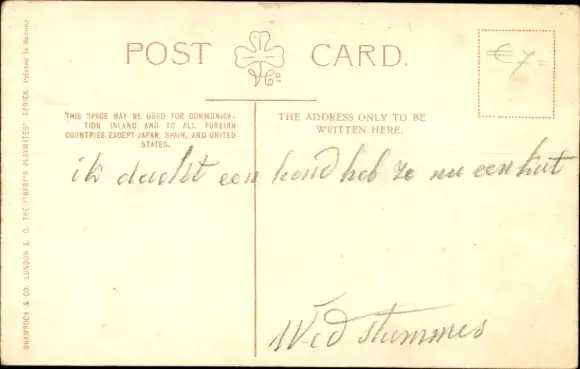 POST CARD.
€ 7=
THIS SPACE MAY BE USED FOR COMMUNICA-
TION INLAND AND TO ALL FOREIGN
COUNTRIES EXCEPT JAPAN, SPAIN, AND UNITED
STATES.
THE ADDRESS ONLY TO BE
WRITTEN HERE.
ik dacht een hond heb ze nu een kat
Wed Stummes
SHAMROCK & CO. LONDON E. C. THE "BABY'S PLAYMATES" SERIES. Printed in Saxony